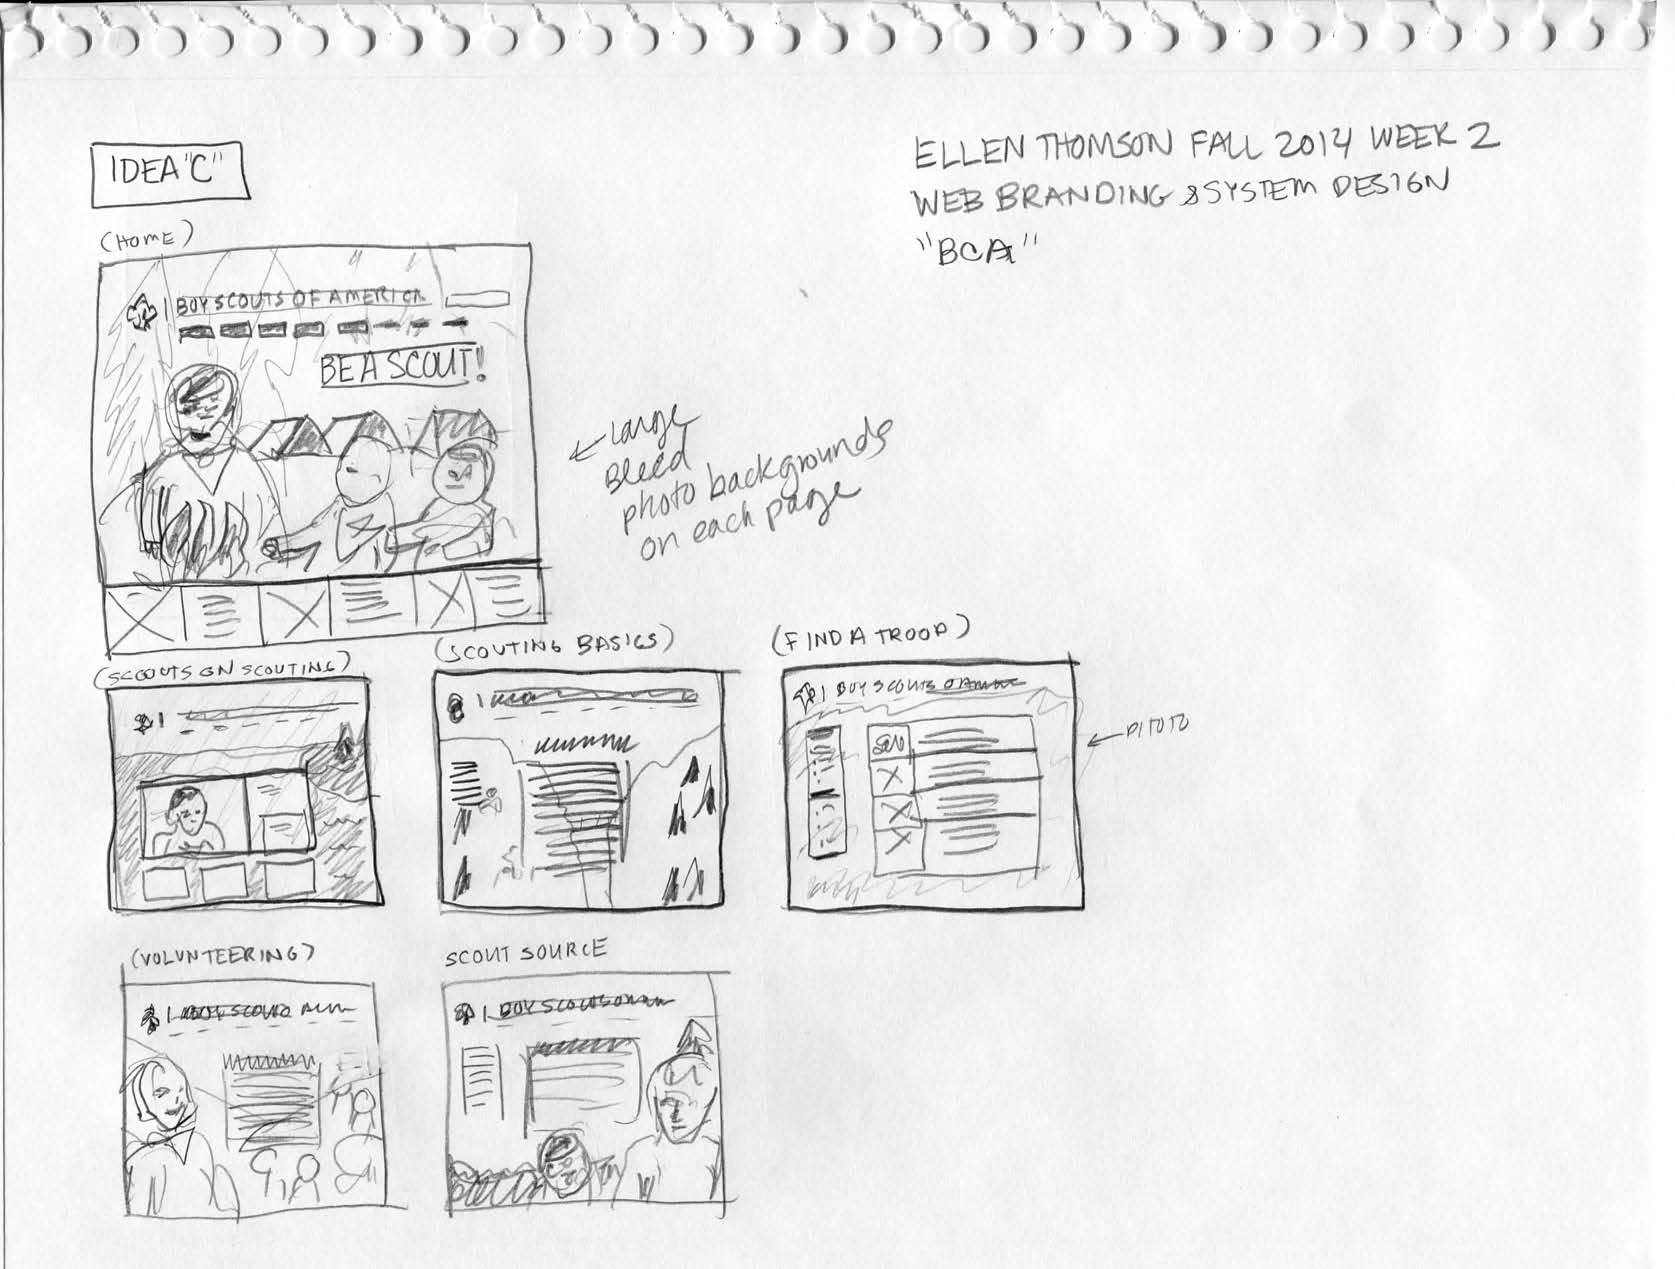 IDEA "C"
ELLEN THOMSON FALL 2014 WEEK 2
WEB BRANDING & SYSTEM DESIGN
"BCA"
(HOME)
BOY SCOUTS OF AMERICA
BE A SCOUT!
← Large
Bleed
photo backgrounds
on each page
(SCOUTS ON SCOUTING)
(SCOUTING BASICS)
(FIND A TROOP)
BOY SCOUTS
← PHOTO
(VOLUNTEERING)
BOY SCOUTS
SCOUT SOURCE
BOY SCOUTS